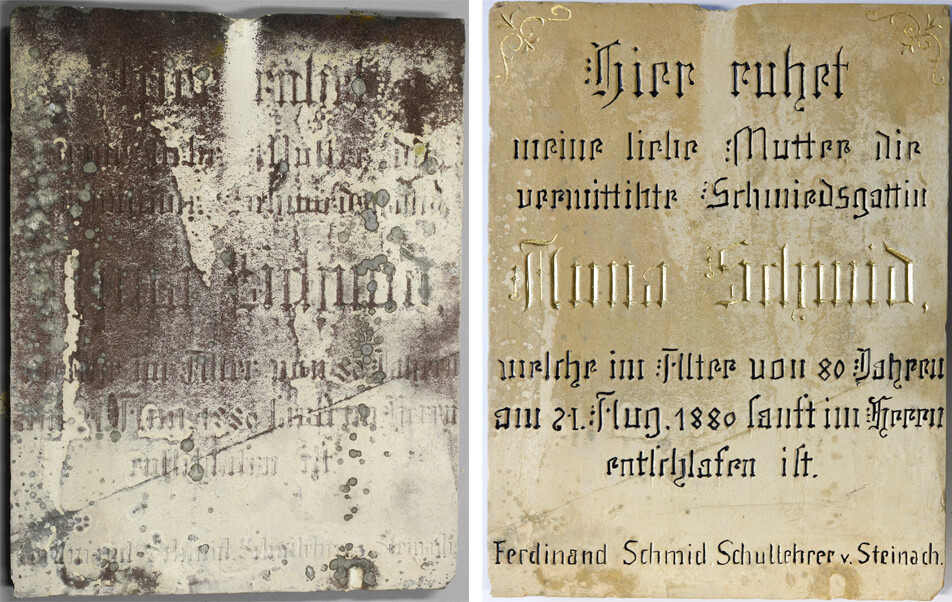 Hier ruhet
meine liebe Mutter, die
Schmiedsgattin
Anna Schmid,
welche im Alter von 80 Jahren
Aug. 1880 sanft im Herrn
entschlafen ist
Ferdinand Schmid, Schullehrer v. Steinach
Hier ruhet
meine liebe Mutter die
verwittibte Schmiedsgattin
Anna Schmid,
welche im Alter von 80 Jahren
am 21. Aug. 1880 sanft im Herrn
entschlafen ist.
Ferdinand Schmid, Schullehrer v. Steinach.